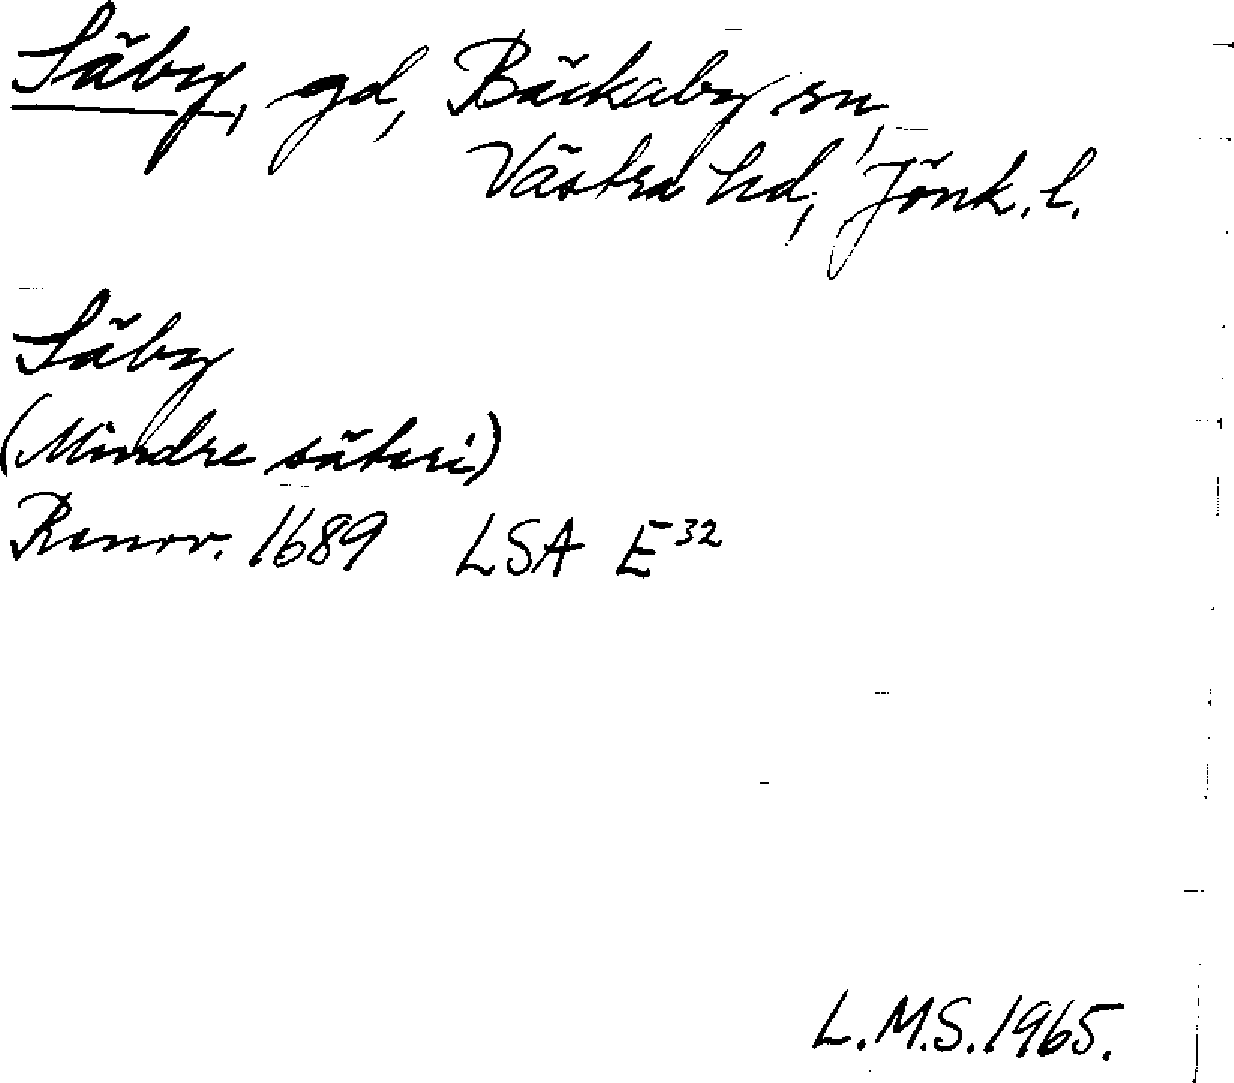 Säby, gd, Bäckaby sn,
Västra hd, Jönk. l.
Säby
(Mindre säteri)
Renov. 1689 LSA E32
L.M.S. 1965.